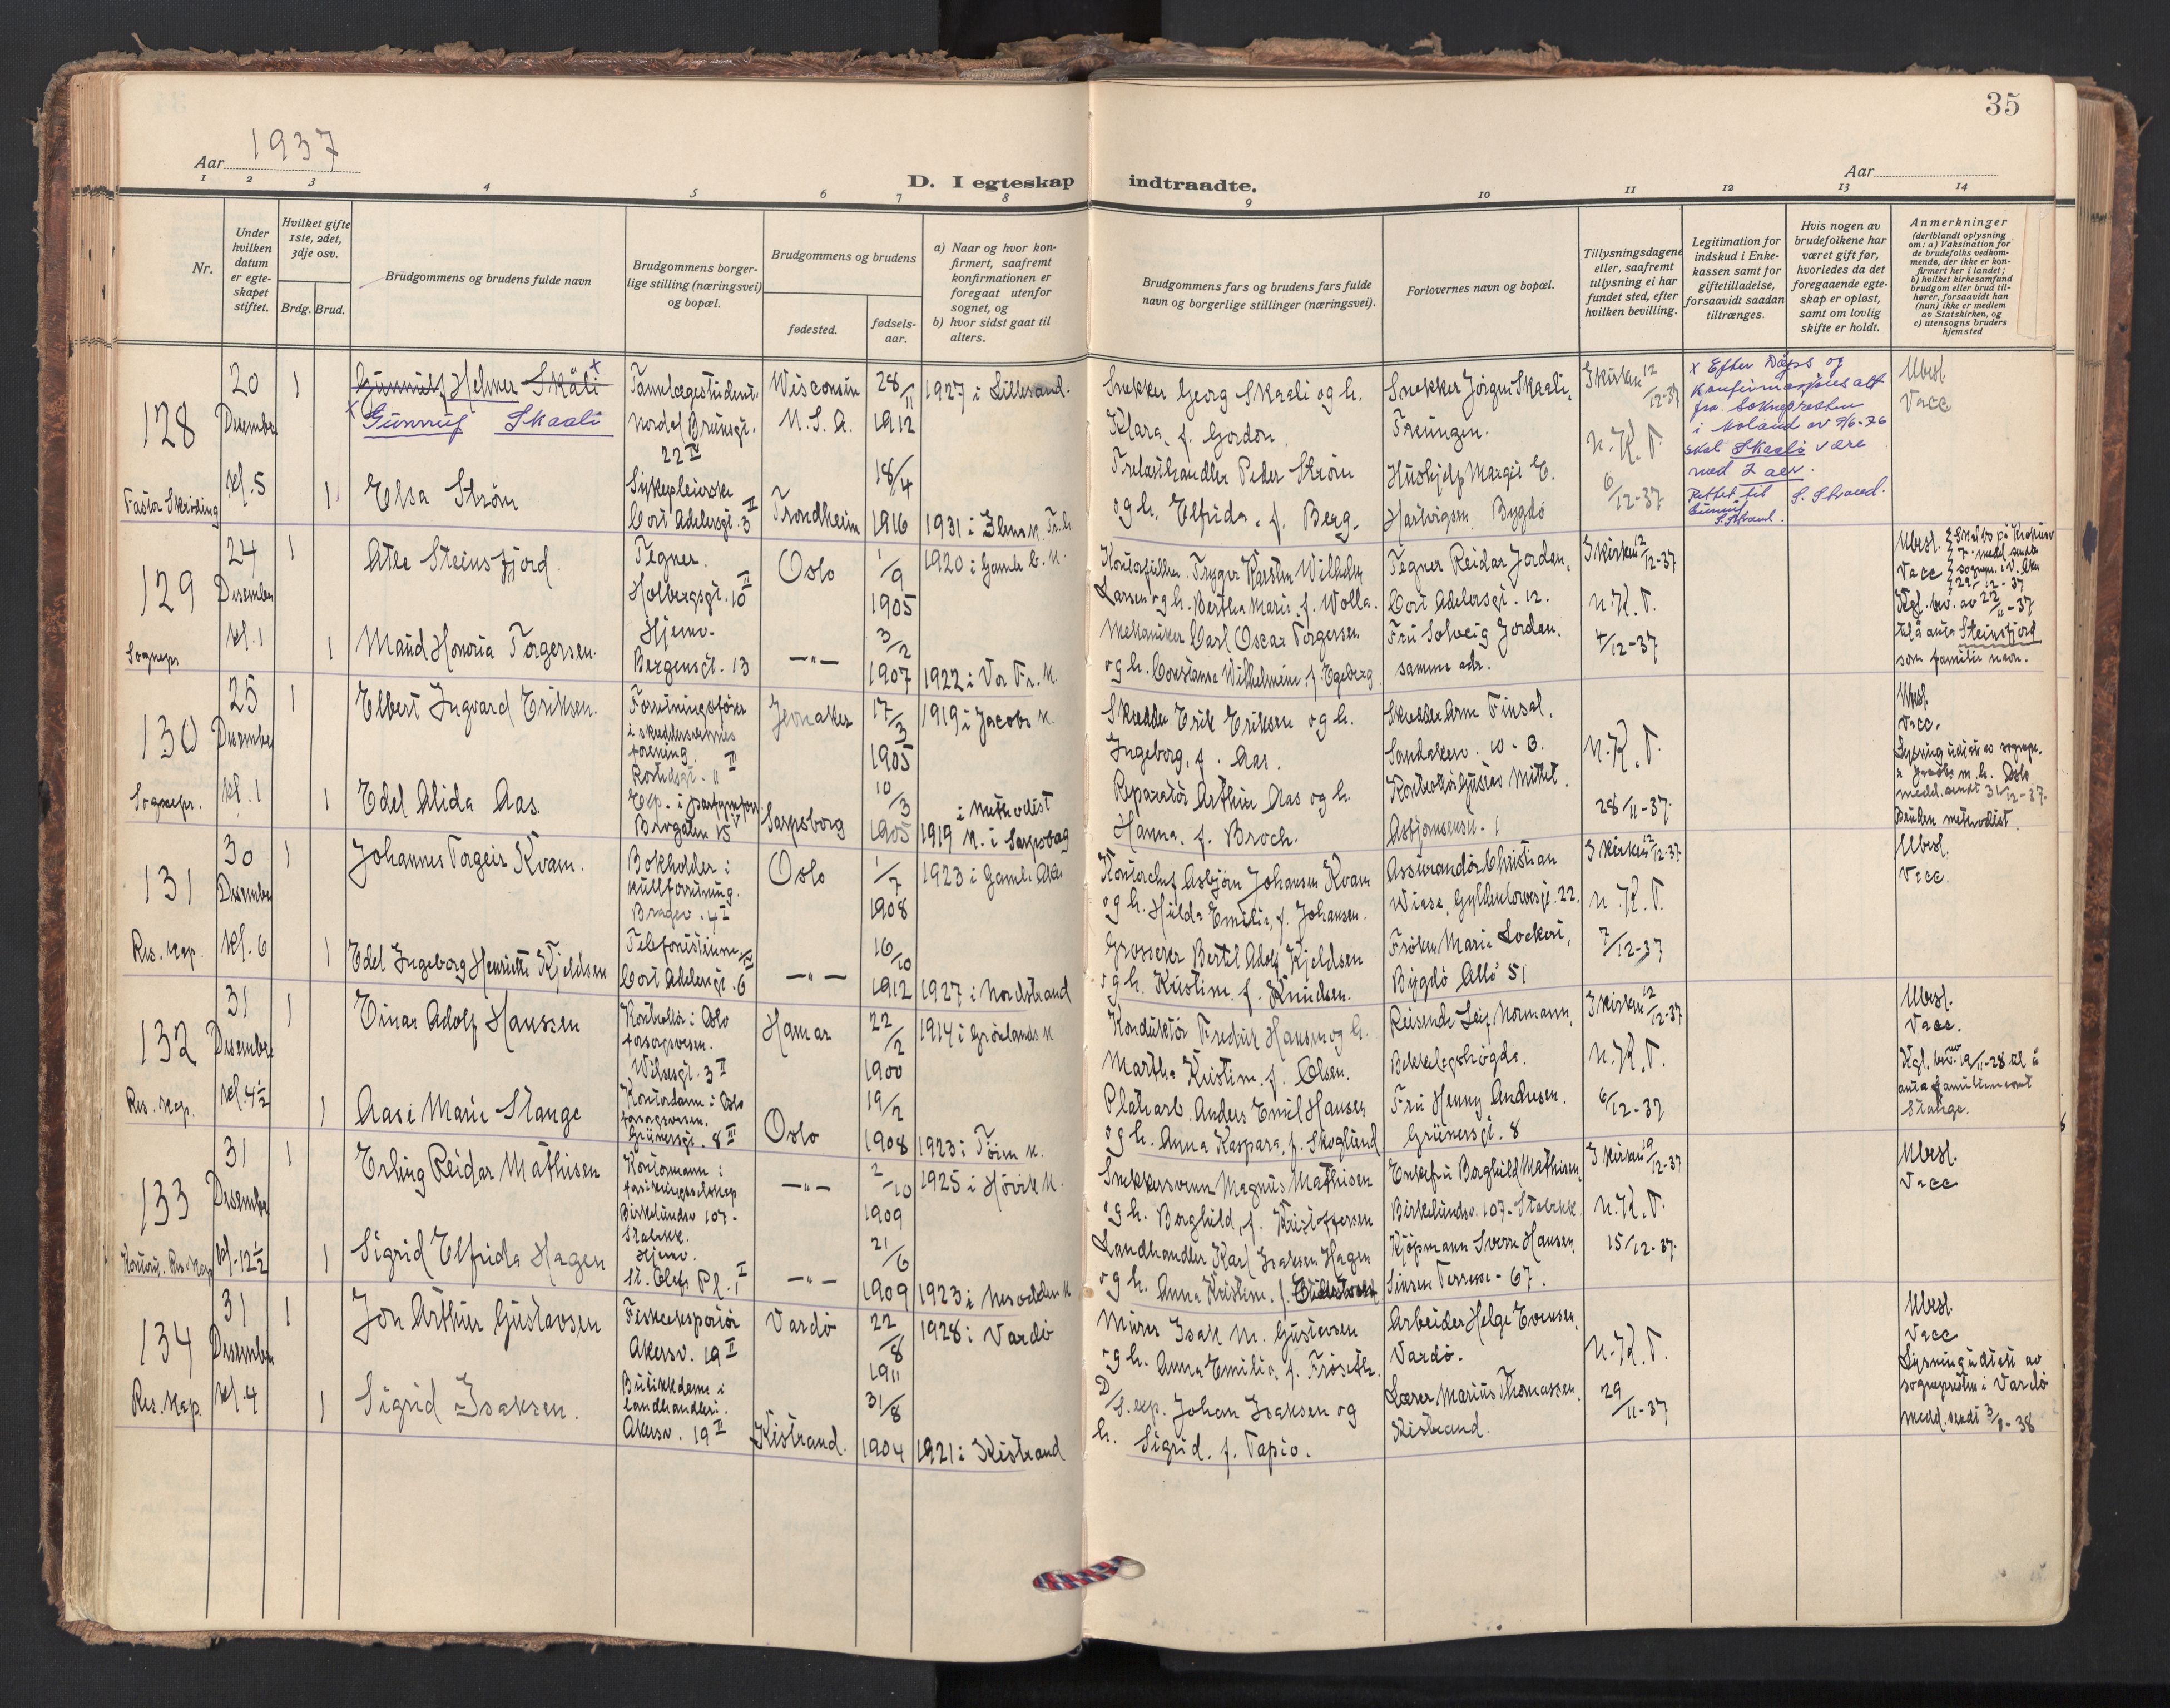 35
Aar 1937
Aar
D. I egteskap indtraadte.
1 2 3 4 5 6 7 8 9 10 11 12 13 14
Nr.
Under hvilken datum er egteskapet stiftet.
Hvilket gifte 1ste, 2det, 3dje osv.
Brdg. Brud.
Brudgommens og brudens fulde navn
Brudgommens borgerlige stilling (næringsvei) og bopæl.
Brudgommens og brudens
fødested.
fødselsaar.
a) Naar og hvor konfirmert, saafremt konfirmationen er foregaat utenfor sognet, og
b) hvor sidst gaat til alters.
Brudgommens fars og brudens fars fulde navn og borgerlige stillinger (næringsvei).
Forlovernes navn og bopæl.
Tillysningsdagene eller, saafremt tillysning ei har fundet sted, efter hvilken bevilling.
Legitimation for indskud i Enkekassen samt for giftetilladelse, forsaavidt saadan tiltrænges.
Hvis nogen av brudefolkene har været gift før, hvorledes da det foregaaende egteskap er opløst, samt om lovlig skifte er holdt.
Anmerkninger (deriblandt oplysning om: a) Vaksination for de brudefolks vedkommende, der ikke er konfirmert her i landet; b) hvilket kirkesamfund brudgom eller brud tilhører, forsaavidt han (hun) ikke er medlem av Statskirken, og c) utensogns bruders hjemsted
128
20 Desember kl. 5
Pastor Skriding
1
Gunnulf Helmer Skåli x
x Gunnulf Skaali
Tannlægestudent. Nordal Brunsgt. 22 IV
Wisconsin U.S.A.
28/11 1912
1927 i Lillesand.
Snekker Georg Skaali og h. Klara, f. Gordon.
Snekker Jörgen Skaali, Treungen.
I kirken 12/12-37
N.K.T. 6/12-37
x Efter Dåps, og Konfirmasjonsatt fra soknepresten i Moland av 9/6-76 skal Skaali være med 2 aer.
Rettet til Gunnulf S. Strand.
S. Strand.
Ubesl. Vacc
1
Elsa Ström
Sykepleierske Cort Adelersgt. 3 II
Trondheim
18/4 1916
1931 i Ilens k. Tr.h.
Trelasthandler Peder Ström og h. Elfrida, f. Berg.
Hushjelp Margit E. Hartvigsen, Bygdö
129
24 Desember kl. 1
Sognepr
1
Atle Steinsfjord.
Tegner. Holbergsgt. 10 II
Oslo
1/9 1905
1920 i Gamle A. K.
Kontorfullm. Trygve Karsten Wilhelm Larsen og h. Bertha Marie, f. Wolla.
Tegner Reidar Jordan, Cort Adelersgt. 12.
I kirken 12/12-37
N.K.T. 4/12-37
Ubesl. Vacc
Kgl. bev. av 22/11-37 til å anta Steinsfjord som familie navn.
1
Maud Honoria Torgersen.
Hjemv. Bergensgt. 13
—"—
3/2 1907
1922 i Vor Fr. K.
Mekaniker Carl Oscar Torgersen og h. Constanse Wilhelmine f. Egeberg.
Fru Solveig Jordan. samme adr.
130
25 Desember kl. 1
Sognepr.
1
Elbert Ingvard Eriksen.
Forretningsförer i skreddersvennes forening.
Jevnaker
17/3 1905
1919 i Jacobs k.
Skredder Erik Eriksen og h. Ingeborg, f. Aas.
Skredder Arne Finsal, Sandakerv. 10. B.
N.K.T. 28/11-37.
Ubesl. Vacc.
Lysning utført av sognepr. i Jacobs m.h. Oslo medd. sendt 31/12-37.
Bruden methodist.
1
Edel Alida Aas.
Exp. i parfymforr. Brogaten 15 V
Sarpsborg
10/3 1905
1919 i Methodist K. i Sarpsborg
Reparatör Arthur Aas og h Hanna, f. Broch.
Kontrollör Gustav Mittet. Asbjörnsensv. 1
131
30 Desember kl. 6
Res. Kap.
1
Johannes Torgeir Kvam.
Bokholder i kullforretning. Bragev. 4 I
Oslo
1/7 1908
1923 i Gamle Aker
Kontorchef Asbjörn Johansen Kvam og h. Hilda Emilie, f. Johansen.
Assurandör Christian Wiese, Gyldenlövesgt. 22.
I kirken 12/12-37
N.K.T. 7/12-37
Ubesl. Vacc.
1
Edel Ingeborg Henriette Kjeldsen
Telefonistinne Cort Adelersgt. 6
—"—
16/10 1912
1927 i Nordstrand
Grosserer Bertil Adolf Kjeldsen og h. Kristine. f. Knudsen.
Fröken Marie Lockert, Bygdö Allé 51
132
31 Desember kl. 4½
Res. Kap.
1
Einar Adolf Hanssen
Kontrollör i Oslo forsorgsvesen. Wilsesgt. 3 II
Hamar
22/2 1900
1914 i Grönlands k
Konduktör Fredrik Hansen og h. Martha Kristine. f. Olsen.
Reisende Leif Normann, Bekkelagshögda.
I kirken 12/12-37
N.K.T. 6/12-37
Ubesl. Vacc.
Kgl. bev. av 19/11-28 til å anta familienavnet Stange.
1
Aase Marie Stange
Kontordame i Oslo forsorgsvesen. Grünersgt. 8 III
Oslo
19/2 1908
1923 i Töien k.
Platearb. Anders Emil Hansen og h. Anna Kaspara, f. Skoglund
Fru Henny Andresen. Grünersgt. 8
133
31 Desember kl. 12½
Konst. Res. Kap
1
Erling Reidar Mathisen
Kontormann i forsikringsselskap Birkelundsv. 107. Stabekk.
—"—
2/10 1909
1925 i Hövik K.
Snekkersvenn Magnus Mathisen og h. Borghild, f. Kristoffersen
Enkefru Borghild Mathisen, Birkelundsv. 107. Stabekk.
I kirken 19/12-37
N.K.T. 15/12-37.
Ubesl. Vacc
1
Sigrid Elfrida Hagen
Hjemv. St. Olafs Pl. 1 I
—"—
21/6 1909
1923 i Nesodden K
Landhandler Karl Isaksen Hagen og h. Anna Kristine, f.
Kjöpmann Sverre Hansen, Sinsen Terrasse - 67.
134
31 Desember kl. 4
Res. Kap.
1
Jon Arthur Gustavsen
Fiskeeksportör Akersv. 19 II
Vardö
22/8 1911
1928 i Vardö
Murer Isak M. Gustavsen og h. Anna Emilie, f. Fröseth.
Arbeider Helge Evensen, Vardö.
N.K.T. 29/11-37
Ubesl. Vacc
Lysning utført av sognepresten i Vardö
medd. sendt 3/1-38
1
Sigrid Isaksen.
Butikkdame i landhandleri. Akersv. 19 II
Kistrand.
31/8 1904
1921 i Kistrand
D/S.exp. Johan Isaksen og h. Sigrid. f. Tapio.
Lærer Marius Thomassen. Kistrand.